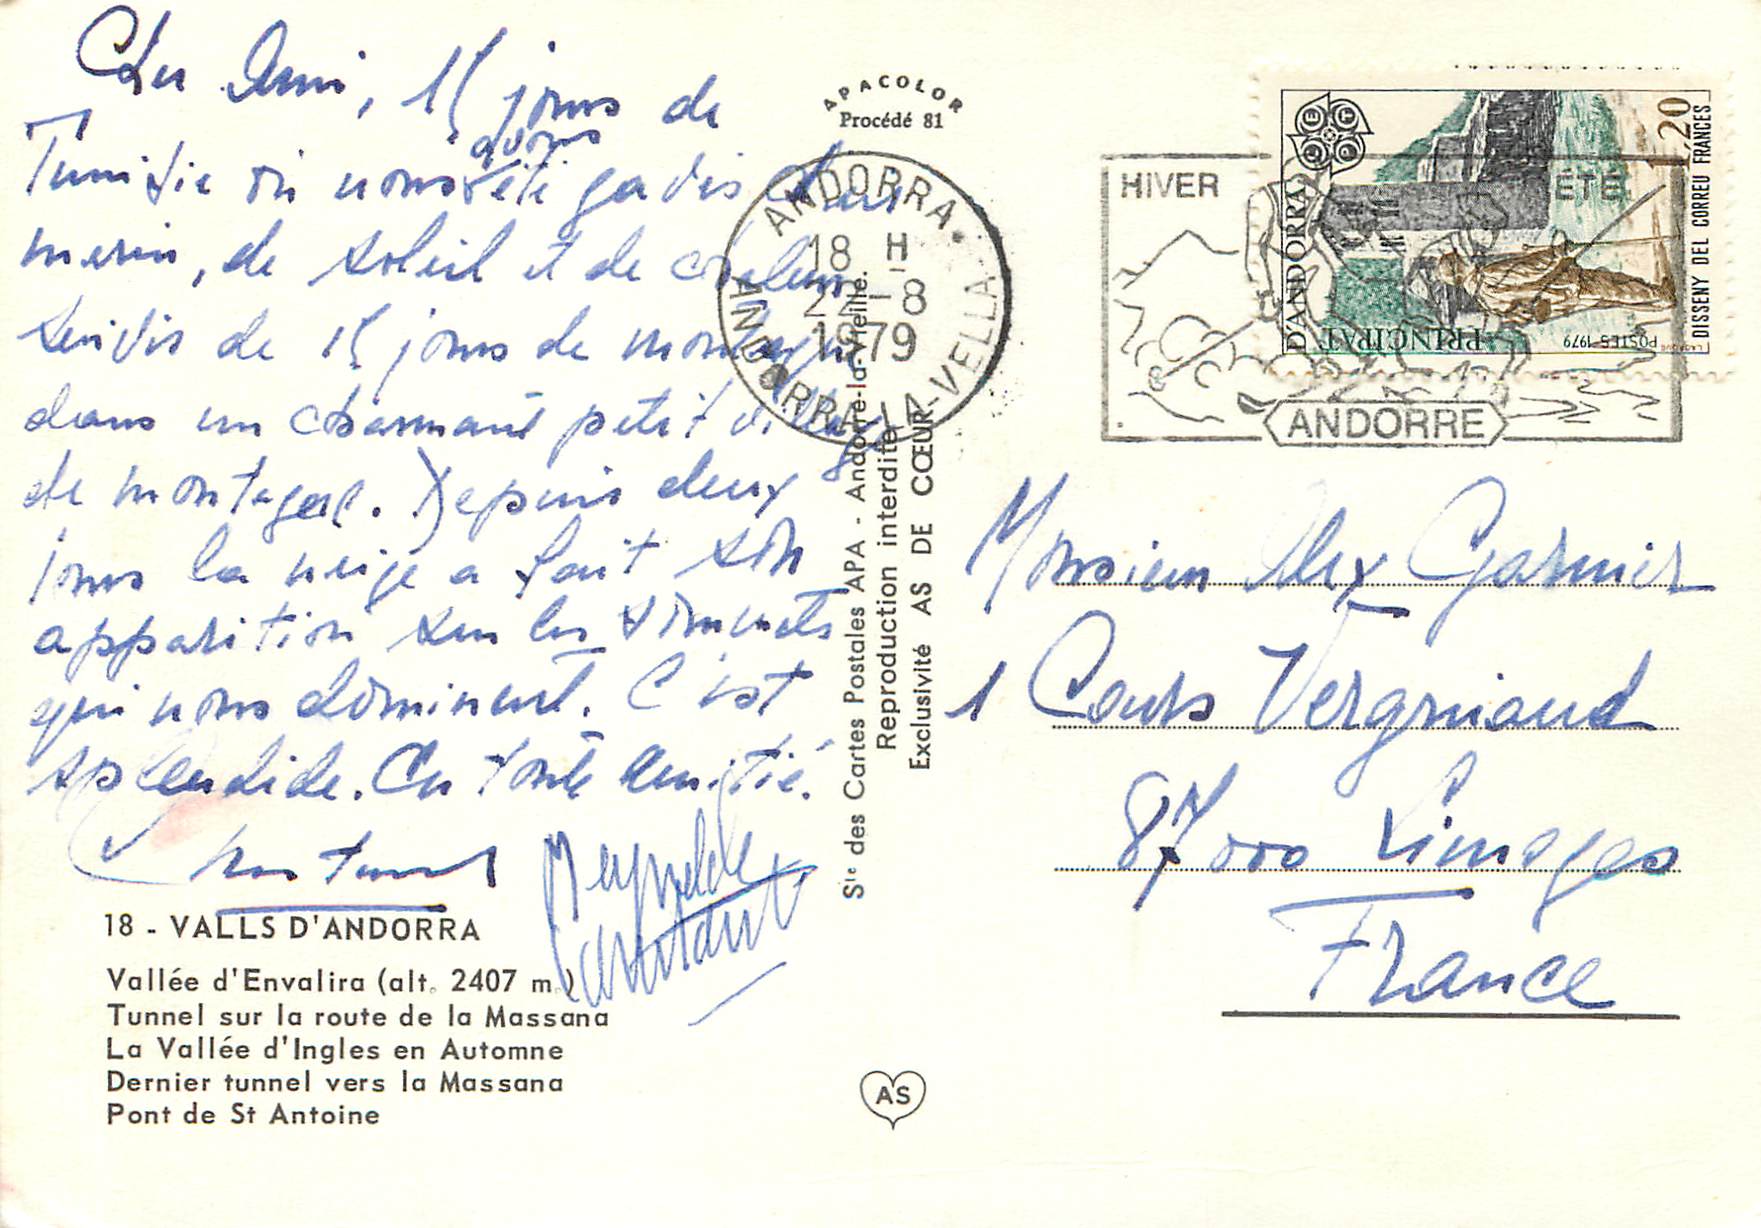 Cher Ami, 15 jours de
Tunisie où nous avons été gavis d'eau
marin, de soleil et de chaleur
suivis de 15 jours de montagne
dans un charmant petit village
de montagne. Depuis deux
jours la neige a fait son
apparition sur les sommets
qui nous dominent. C'est
splendide. En toute amitié.
18 - VALLS D'ANDORRA
Vallée d'Envalira (alt. 2407 m.)
Tunnel sur la route de la Massana
La Vallée d'Ingles en Automne
Dernier tunnel vers la Massana
Pont de St Antoine
APACOLOR
Procédé 81
ANDORRA
18 H
22-8
1979
ANDORRA-LA-VELLA
Sté des Cartes Postales APA - Andorre-la-Vieille.
Reproduction interdite
Exclusivité AS DE CŒUR
AS
HIVER
ÉTÉ
ANDORRE
CEPT
1,20
PRINCIPAT
D'ANDORRA
POSTES-1979
DISSENY DEL CORREU FRANCES
Monsieur Alex Garnier
1 Cours Vergniaud
87000 Limoges
France